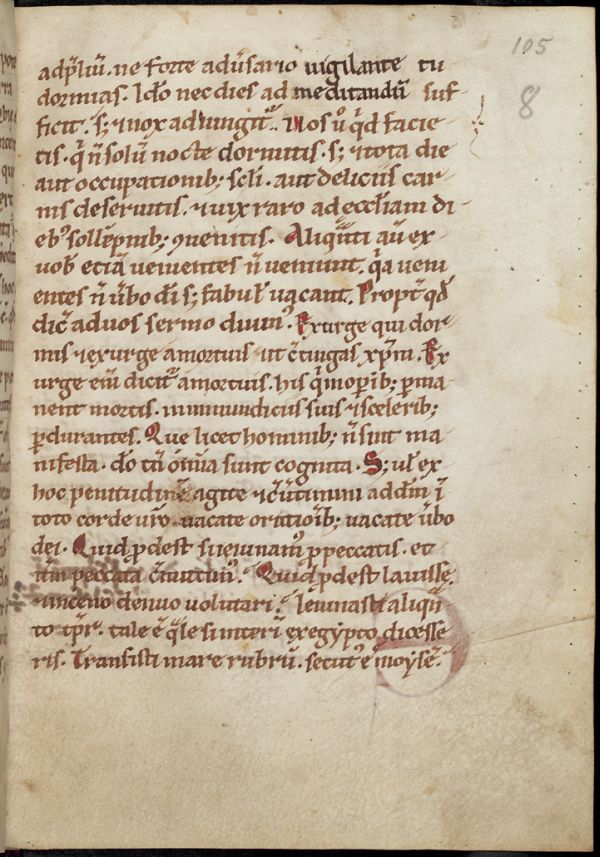 105
8
adp̄liū. ne forte adūsario vigilante tu
dormias. Ido nec dies ad meditandū suf
ficit. s; & nox adiungit᷑. Nos ů qd facie
tis. q̄ ñ solū nocte dormitis. s; & tota die
aut occupationib; scłi. aut deliciis car
nis deservitis. & vix raro ad eccłiam di
eb; sollēpnib; ꝯvenitis. Aliqñti aū ex
vob̄ etiā venientes ñ veniunt. q̄a veni
entes ñ ūbo dī s; fabuł vacant. Propt̄ qd
dic̄ ad vos sermo divin᷒. Exurge qui dor
mis & exurge a mortuis & c̄tingas xp̄m. Ex
urge eni dicit᷑ a mortuis. his q̄ in op̄ib; p̄ma
nent mortis. in inmundiciis suis & scelerib;
p̄durantes. Que licet hominib; ñ sint ma
nifesta. dō tñ om̄ia sunt cognita. S; uł ex
hoc penitudinē agite & c̄ūtimini ad dm̄ ī
toto corde vr̄o. vacate or̄atiōib; vacate ūbo
dei. Quid p̄dest si ieiunam᷒ p peccatis. et
itm̄ peccata c̄mittim᷒. Quid p̄dest lavisse.
& in ceno denuo volutari. Iēiunasti aliqñ
to tp̄r. tale ē q̄le si int̄eri ex egypto discesse
ris. Transisti mare rubrū. secut᷒ ē moysē.